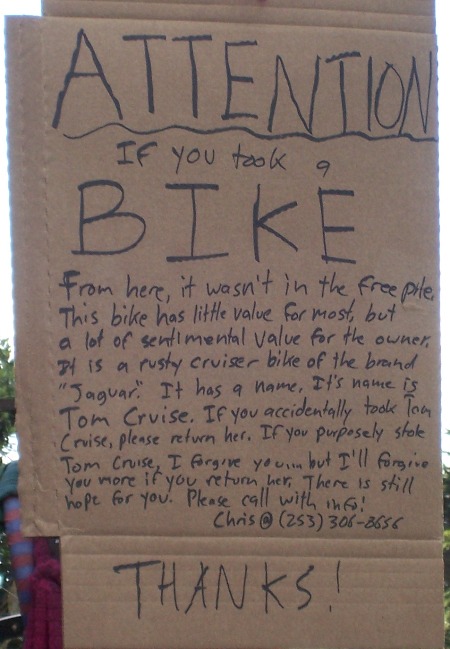 ATTENTION
IF you took a
BIKE
From here, it wasn't in the free pile.
This bike has little value for most, but
a lot of sentimental value for the owner.
It is a rusty cruiser bike of the brand
"Jaguar." It has a name. It's name is
Tom Cruise. If you accidentally took Tom
Cruise, please return her. If you purposely stole
Tom Cruise, I forgive you... but I'll forgive
you more if you return her. There is still
hope for you. Please call with info!
Chris @ (253) 306-8656
THANKS!